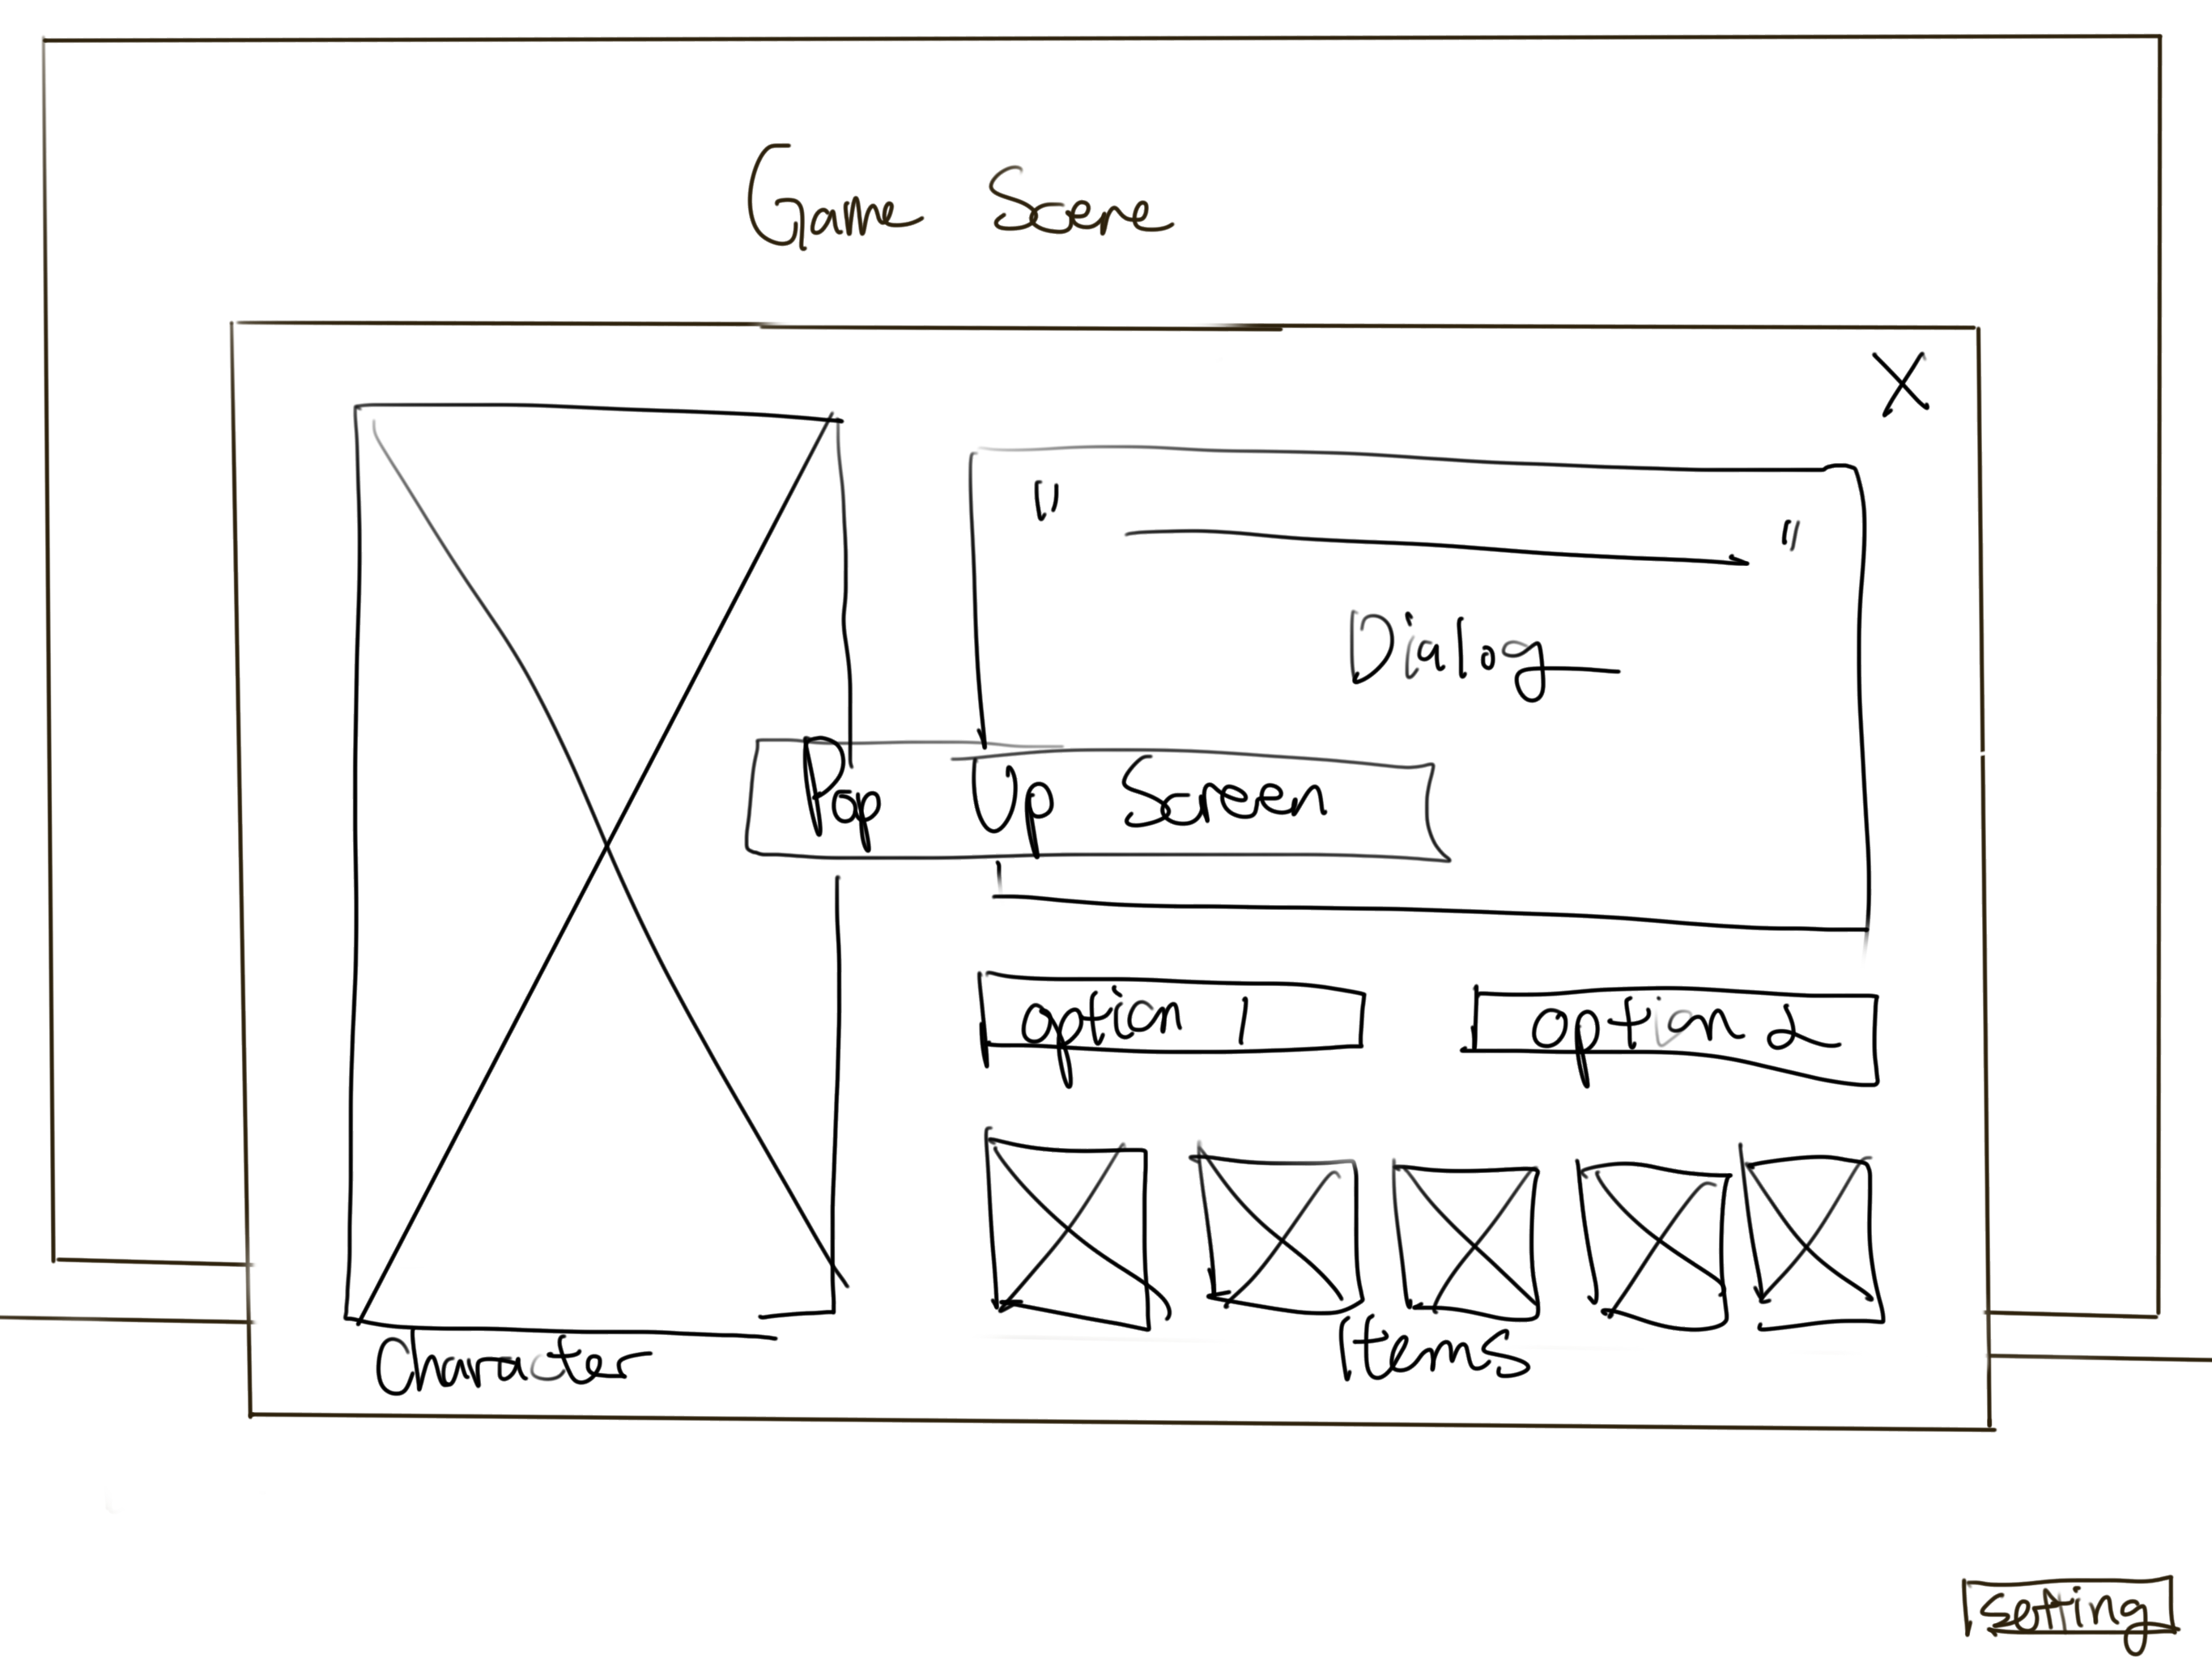 Game Scene
X
" "
Dialog
Pop Up Screen
option 1
option 2
Character
Items
setting